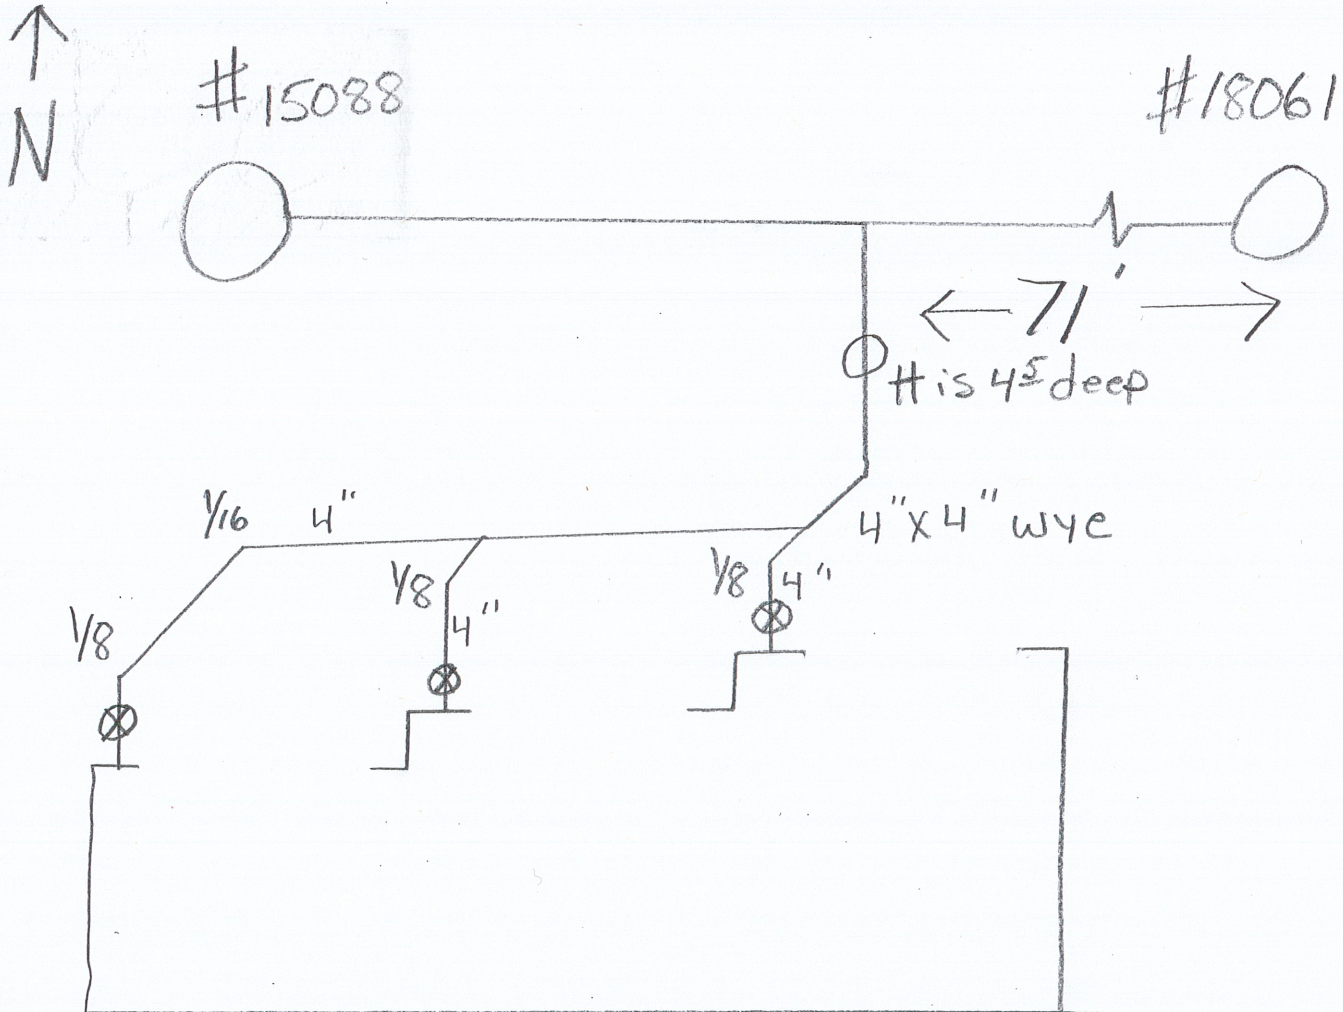 N
#15088
#18061
71'
H is 4⁵ deep
1/16 4"
4"x4" wye
1/8
1/8 4"
1/8
4"